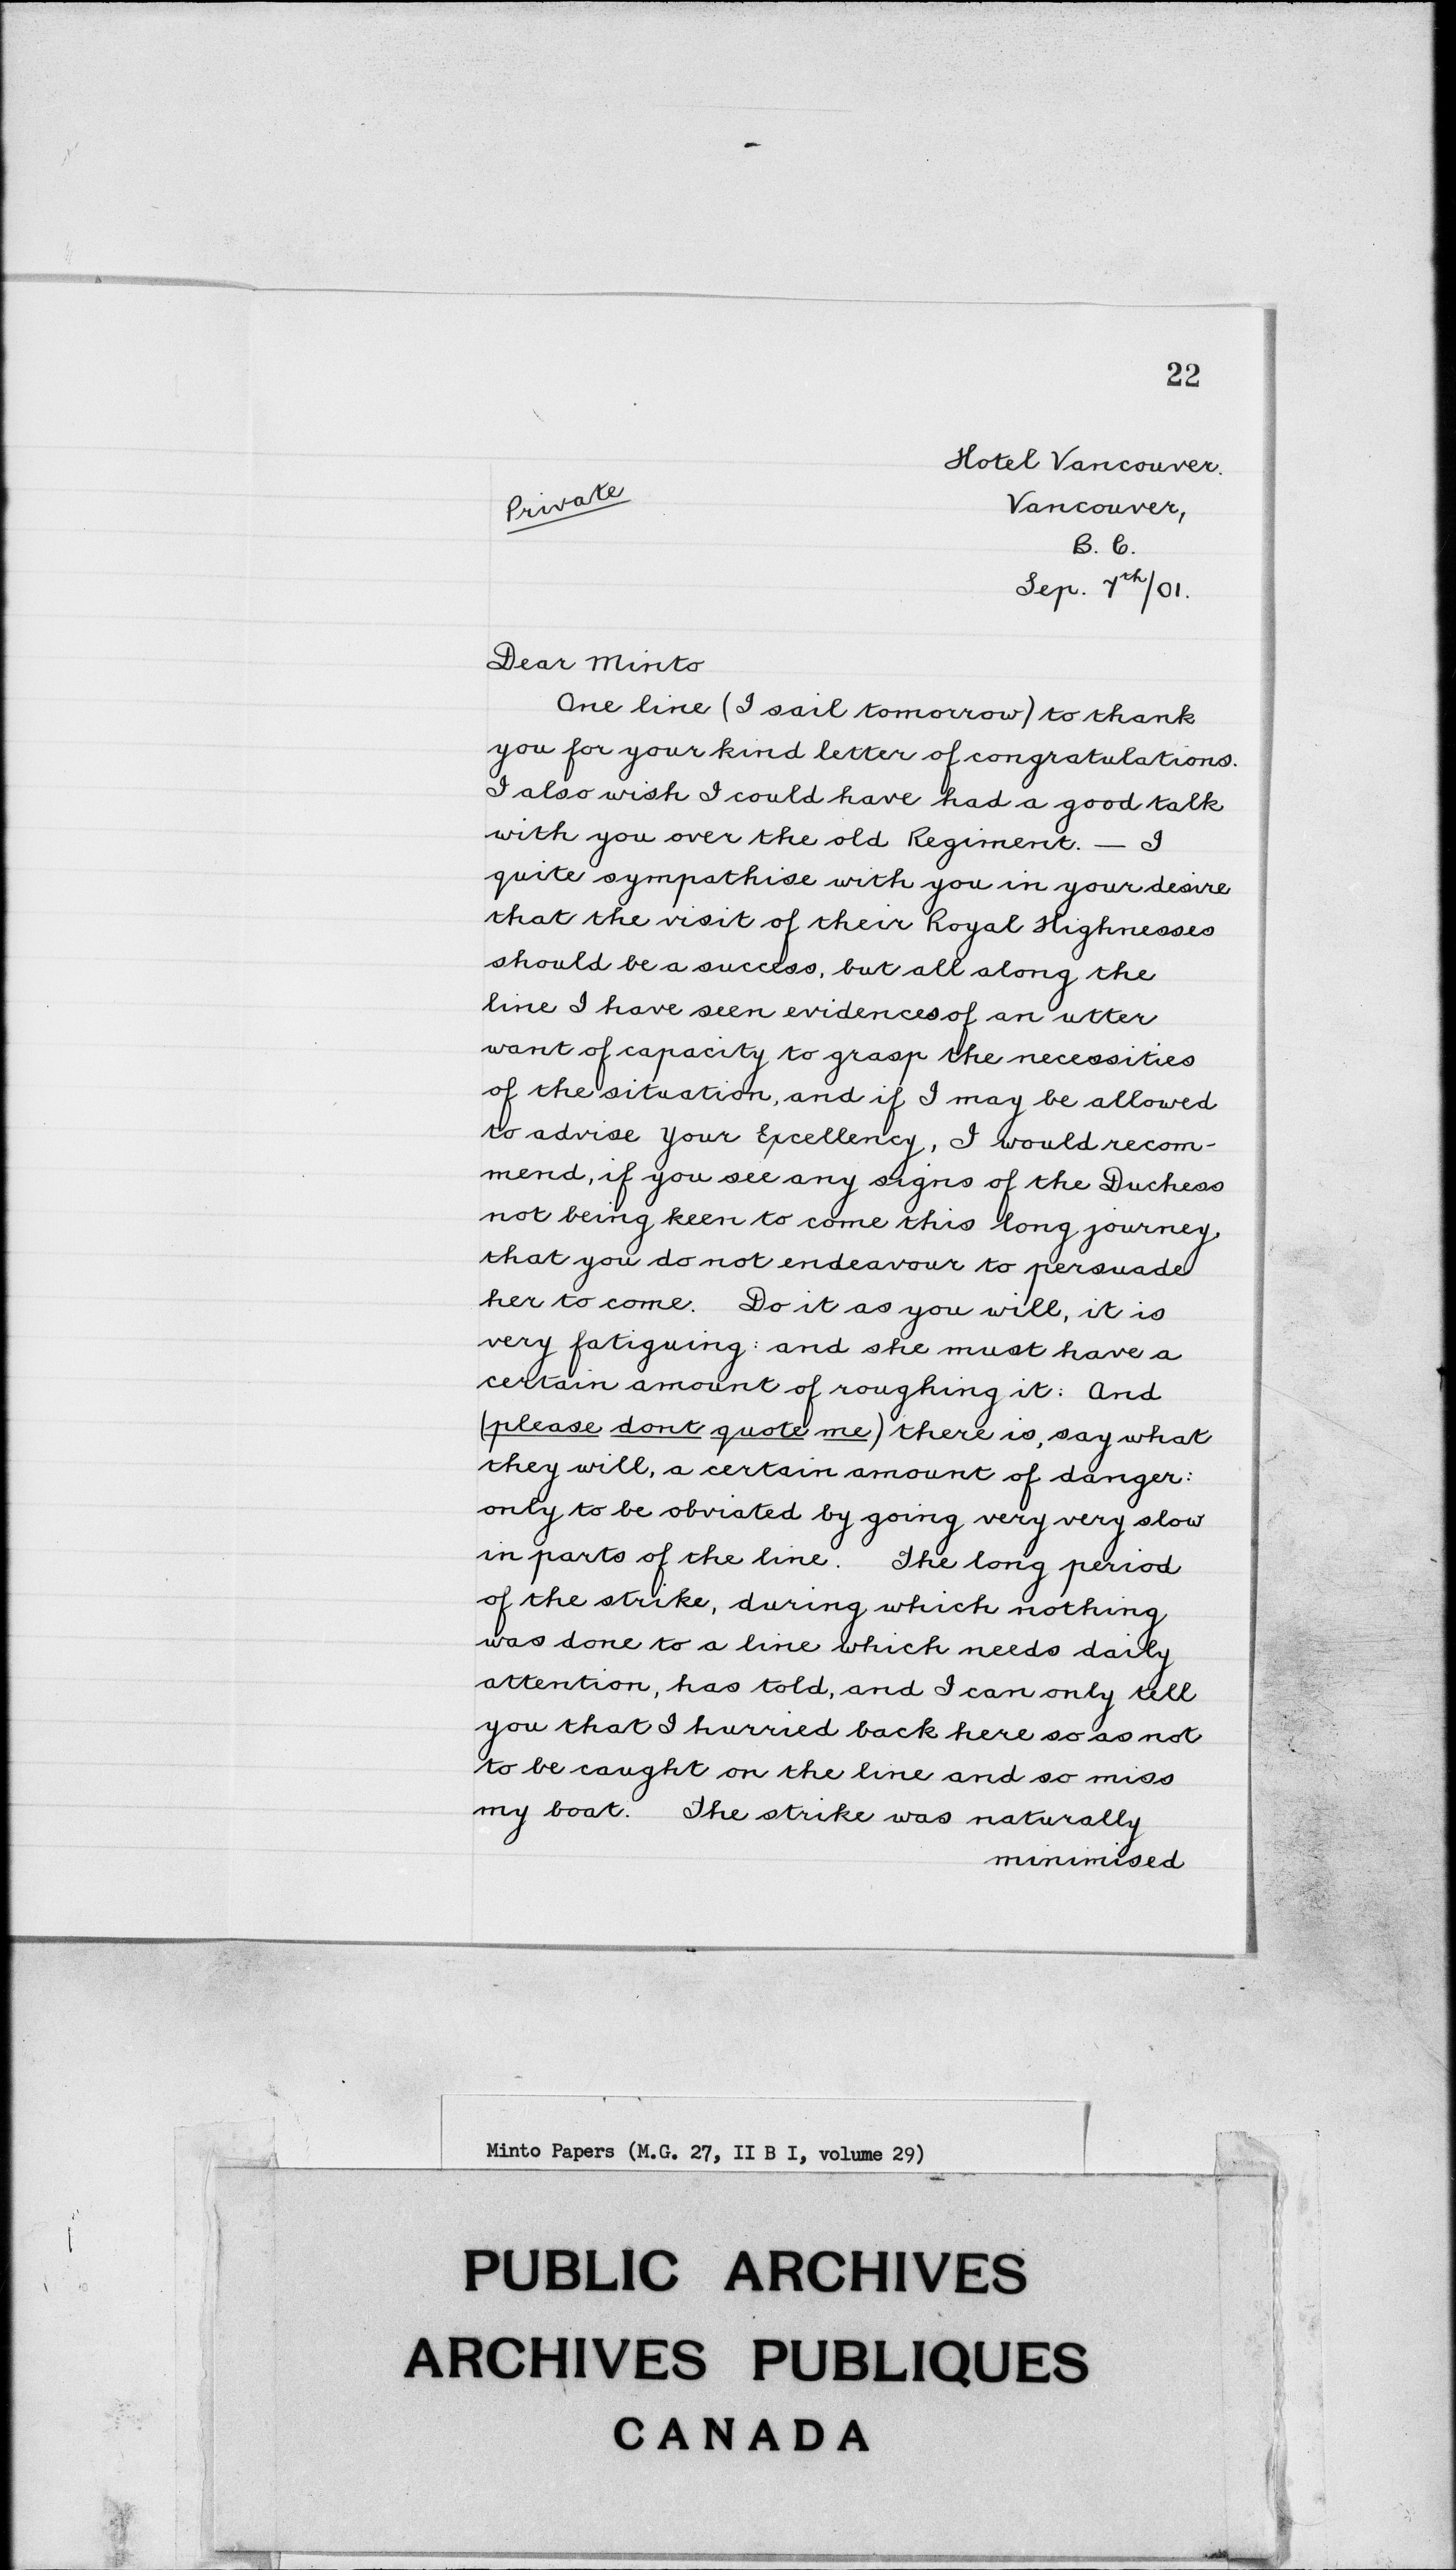 22
Hotel Vancouver.
Private
Vancouver,
B. C.
Sep. 7th/01.
Dear Minto
One line (I sail tomorrow) to thank
you for your kind letter of congratulations.
I also wish I could have had a good talk
with you over the old Regiment. — I
quite sympathise with you in your desire
that the visit of their Royal Highnesses
should be a success, but all along the
line I have seen evidences of an utter
want of capacity to grasp the necessities
of the situation, and if I may be allowed
to advise Your Excellency, I would recom-
mend, if you see any signs of the Duchess
not being keen to come this long journey,
that you do not endeavour to persuade
her to come. Do it as you will, it is
very fatiguing: and she must have a
certain amount of roughing it: And
(please dont quote me) there is, say what
they will, a certain amount of danger:
only to be obviated by going very very slow
in parts of the line. The long period
of the strike, during which nothing
was done to a line which needs daily
attention, has told, and I can only tell
you that I hurried back here so as not
to be caught on the line and so miss
my boat. The strike was naturally
minimised
Minto Papers (M.G. 27, II B I, volume 29)
PUBLIC ARCHIVES
ARCHIVES PUBLIQUES
CANADA